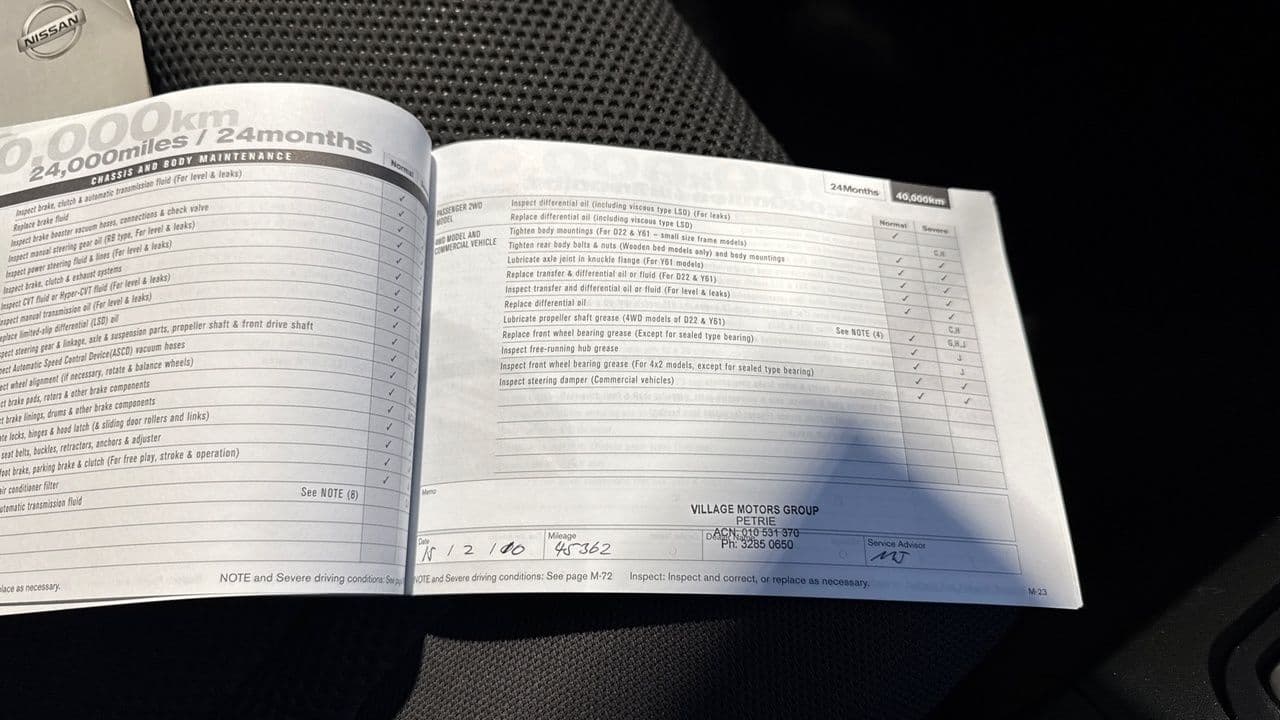 NISSAN
0,000km
24,000miles / 24months
CHASSIS AND BODY MAINTENANCE
Normal
Inspect brake, clutch & automatic transmission fluid (For level & leaks) ✓
Replace brake fluid ✓
Inspect brake booster vacuum hoses, connections & check valve ✓
Inspect manual steering gear oil (RB type, For level & leaks) ✓
Inspect power steering fluid & lines (For level & leaks) ✓
Inspect brake, clutch & exhaust systems ✓
Inspect CVT fluid or Hyper-CVT fluid (For level & leaks) ✓
spect manual transmission oil (For level & leaks) ✓
eplace limited-slip differential (LSD) oil
pect steering gear & linkage, axle & suspension parts, propeller shaft & front drive shaft ✓
pect Automatic Speed Control Device(ASCD) vacuum hoses ✓
ect wheel alignment (if necessary, rotate & balance wheels) ✓
ct brake pads, rotors & other brake components ✓
t brake linings, drums & other brake components ✓
ate locks, hinges & hood latch (& sliding door rollers and links) ✓
seat belts, buckles, retractors, anchors & adjuster ✓
foot brake, parking brake & clutch (For free play, stroke & operation) ✓
air conditioner filter ✓
utomatic transmission fluid See NOTE (8)
lace as necessary.
NOTE and Severe driving conditions: See pag
24Months 40,000km
Normal Severe
PASSENGER 2WD MODEL
Inspect differential oil (including viscous type LSD) (For leaks) ✓
Replace differential oil (including viscous type LSD) C,H
4WD MODEL AND COMMERCIAL VEHICLE
Tighten body mountings (For D22 & Y61 – small size frame models) ✓ ✓
Tighten rear body bolts & nuts (Wooden bed models only) and body mountings ✓ ✓
Lubricate axle joint in knuckle flange (For Y61 models) ✓ ✓
Replace transfer & differential oil or fluid (For D22 & Y61) ✓ ✓
Inspect transfer and differential oil or fluid (For level & leaks) ✓ ✓
Replace differential oil C,H
Lubricate propeller shaft grease (4WD models of D22 & Y61) See NOTE (4) ✓ G,H,J
Replace front wheel bearing grease (Except for sealed type bearing) ✓ J
Inspect free-running hub grease ✓ J
Inspect front wheel bearing grease (For 4x2 models, except for sealed type bearing) ✓ ✓
Inspect steering damper (Commercial vehicles) ✓ ✓
Memo
VILLAGE MOTORS GROUP
PETRIE
ACN: 010 531 370
Ph: 3285 0650
Date
Mileage 45362
Service Advisor
NOTE and Severe driving conditions: See page M-72 Inspect: Inspect and correct, or replace as necessary.
M-23